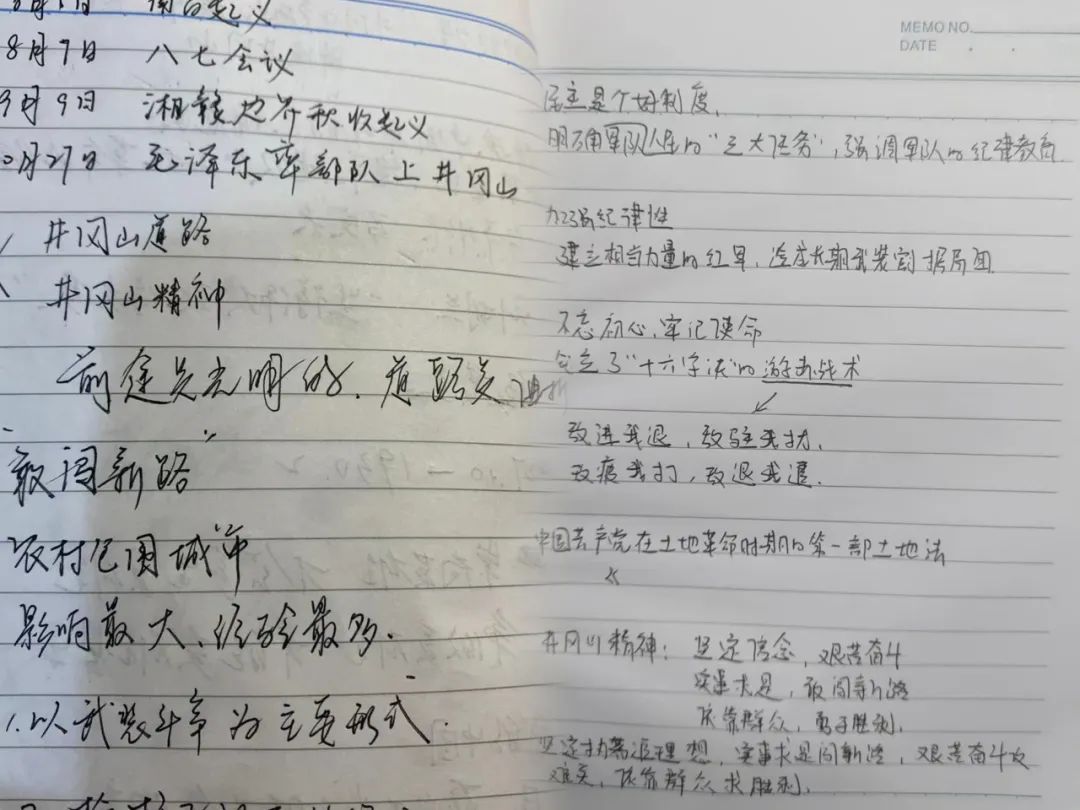 8月7日 八七会议
9月9日 湘赣边界秋收起义
月27日 毛泽东率部队上井冈山
井冈山道路
井冈山精神
前途是光明的.道路是曲折
敢闯新路
农村包围城市
影响最大、经验最多.
1.以武装斗争为主要形式.
MEMO NO.
DATE
民主是个好制度.
明确军队的“三大任务”,强调军队的纪律教育
加强纪律性
建立相当力量的红军,造成长期武装割据局面
不忘初心,牢记使命
“十六字诀”的游击战术
敌进我退,敌驻我扰.
敌疲我打,敌退我追.
中国共产党在土地革命时期的第一部土地法
井冈山精神: 坚定信念,艰苦奋斗
实事求是,敢闯新路
依靠群众,勇于胜利.
坚定执着追理想,实事求是闯新路,艰苦奋斗攻
难关,依靠群众求胜利.